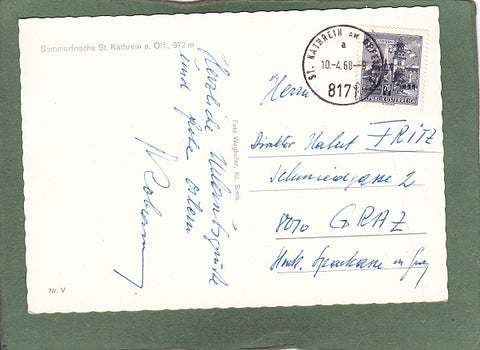 Sommerfrische St. Kathrein a. Off., 972 m
Herzliche Urlaubsgrüße
und gute Ostern
Foto Weghofer, 
ST. KATHREIN AM OFFENEGG
a
10.-4.68-8
8171
70
Herrn
Direktor Herbert FRITZ
Schmiedgasse 2
8010 GRAZ
Sparkasse in Graz
Nr. V